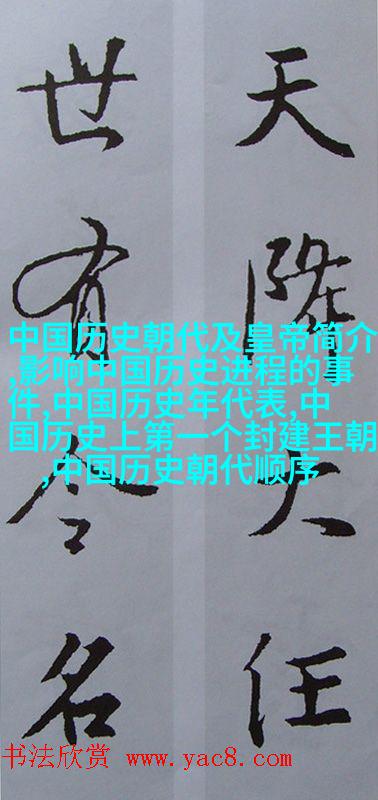 天降大任
世有令名
中国历史朝代及皇帝简介
,影响中国历史进程的事
件,中国历史年代表,中
国历史上第一个封建王朝
,中国历史朝代顺序
书法欣赏 www.yac8.com